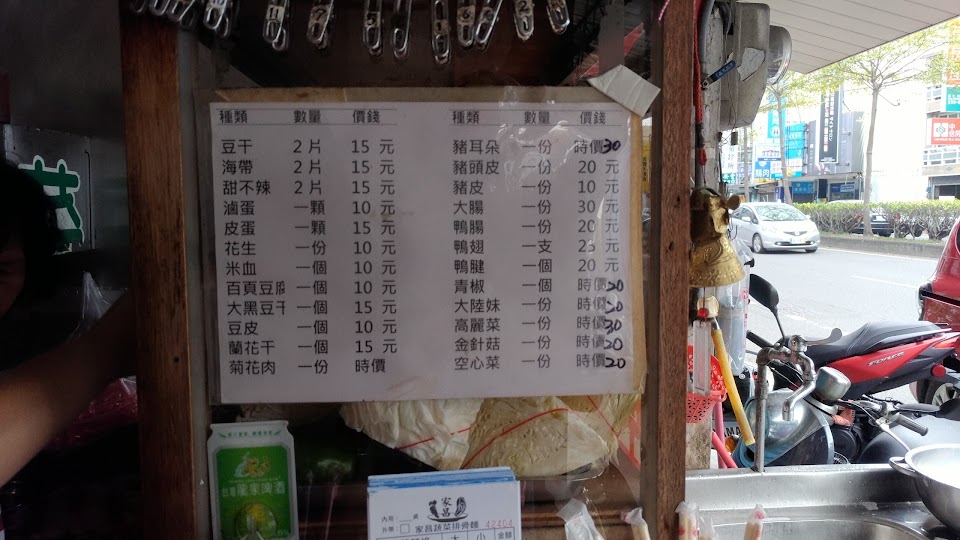 種類 數量 價錢
豆干 2片 15元
海帶 2片 15元
甜不辣 2片 15元
滷蛋 一顆 10元
皮蛋 一顆 15元
花生 一份 10元
米血 一個 10元
百頁豆腐 一個 10元
大黑豆干 一個 15元
豆皮 一個 10元
蘭花干 一個 15元
菊花肉 一份 時價
種類 數量 價錢
豬耳朵 一份 時價30
豬頭皮 一份 20元
豬皮 一份 10元
大腸 一份 30元
鴨腸 一份 20元
鴨翅 一支 23元
鴨腱 一個 20元
青椒 一個 時價20
大陸妹 一份 時價30
高麗菜 一份 時價30
金針菇 一份 時價20
空心菜 一份 時價20
家昌
內用 號
外帶
家昌蔬菜排骨麵 42404
大 小 金額